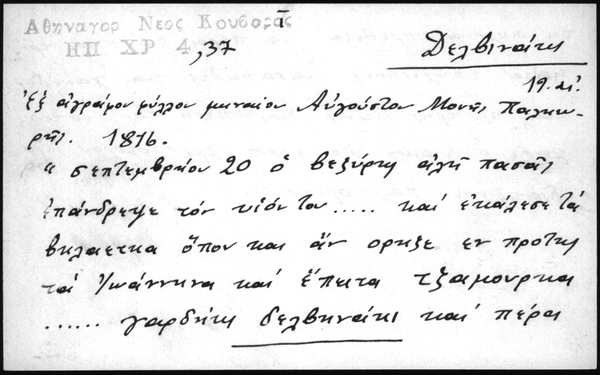 Αθηναγορ Νεος Κουβαρᾶς ī
ΗΠ ΧΡ 4, 37
Δελβινάκι
19. αἰ.
Ἐξ ἀγράφου φύλλου μηναίου Αὐγούστου Μονῆς Παλιου-
ρῆς. 1816.
"σεπτεμβρίου 20 ὁ βεζύρης ἀλῆ πασᾶς
ἐπάνδρεψε τόν υἱόν του ..... καί ἐκάλεσε τά
βηλαετκα ὅπου και ἄν ορηξε εν προτης
τά Ἰωάννηνα καί ἔπητα τζαμουρκα
...... γαρδήκη δελβηνάκι καί πέρα